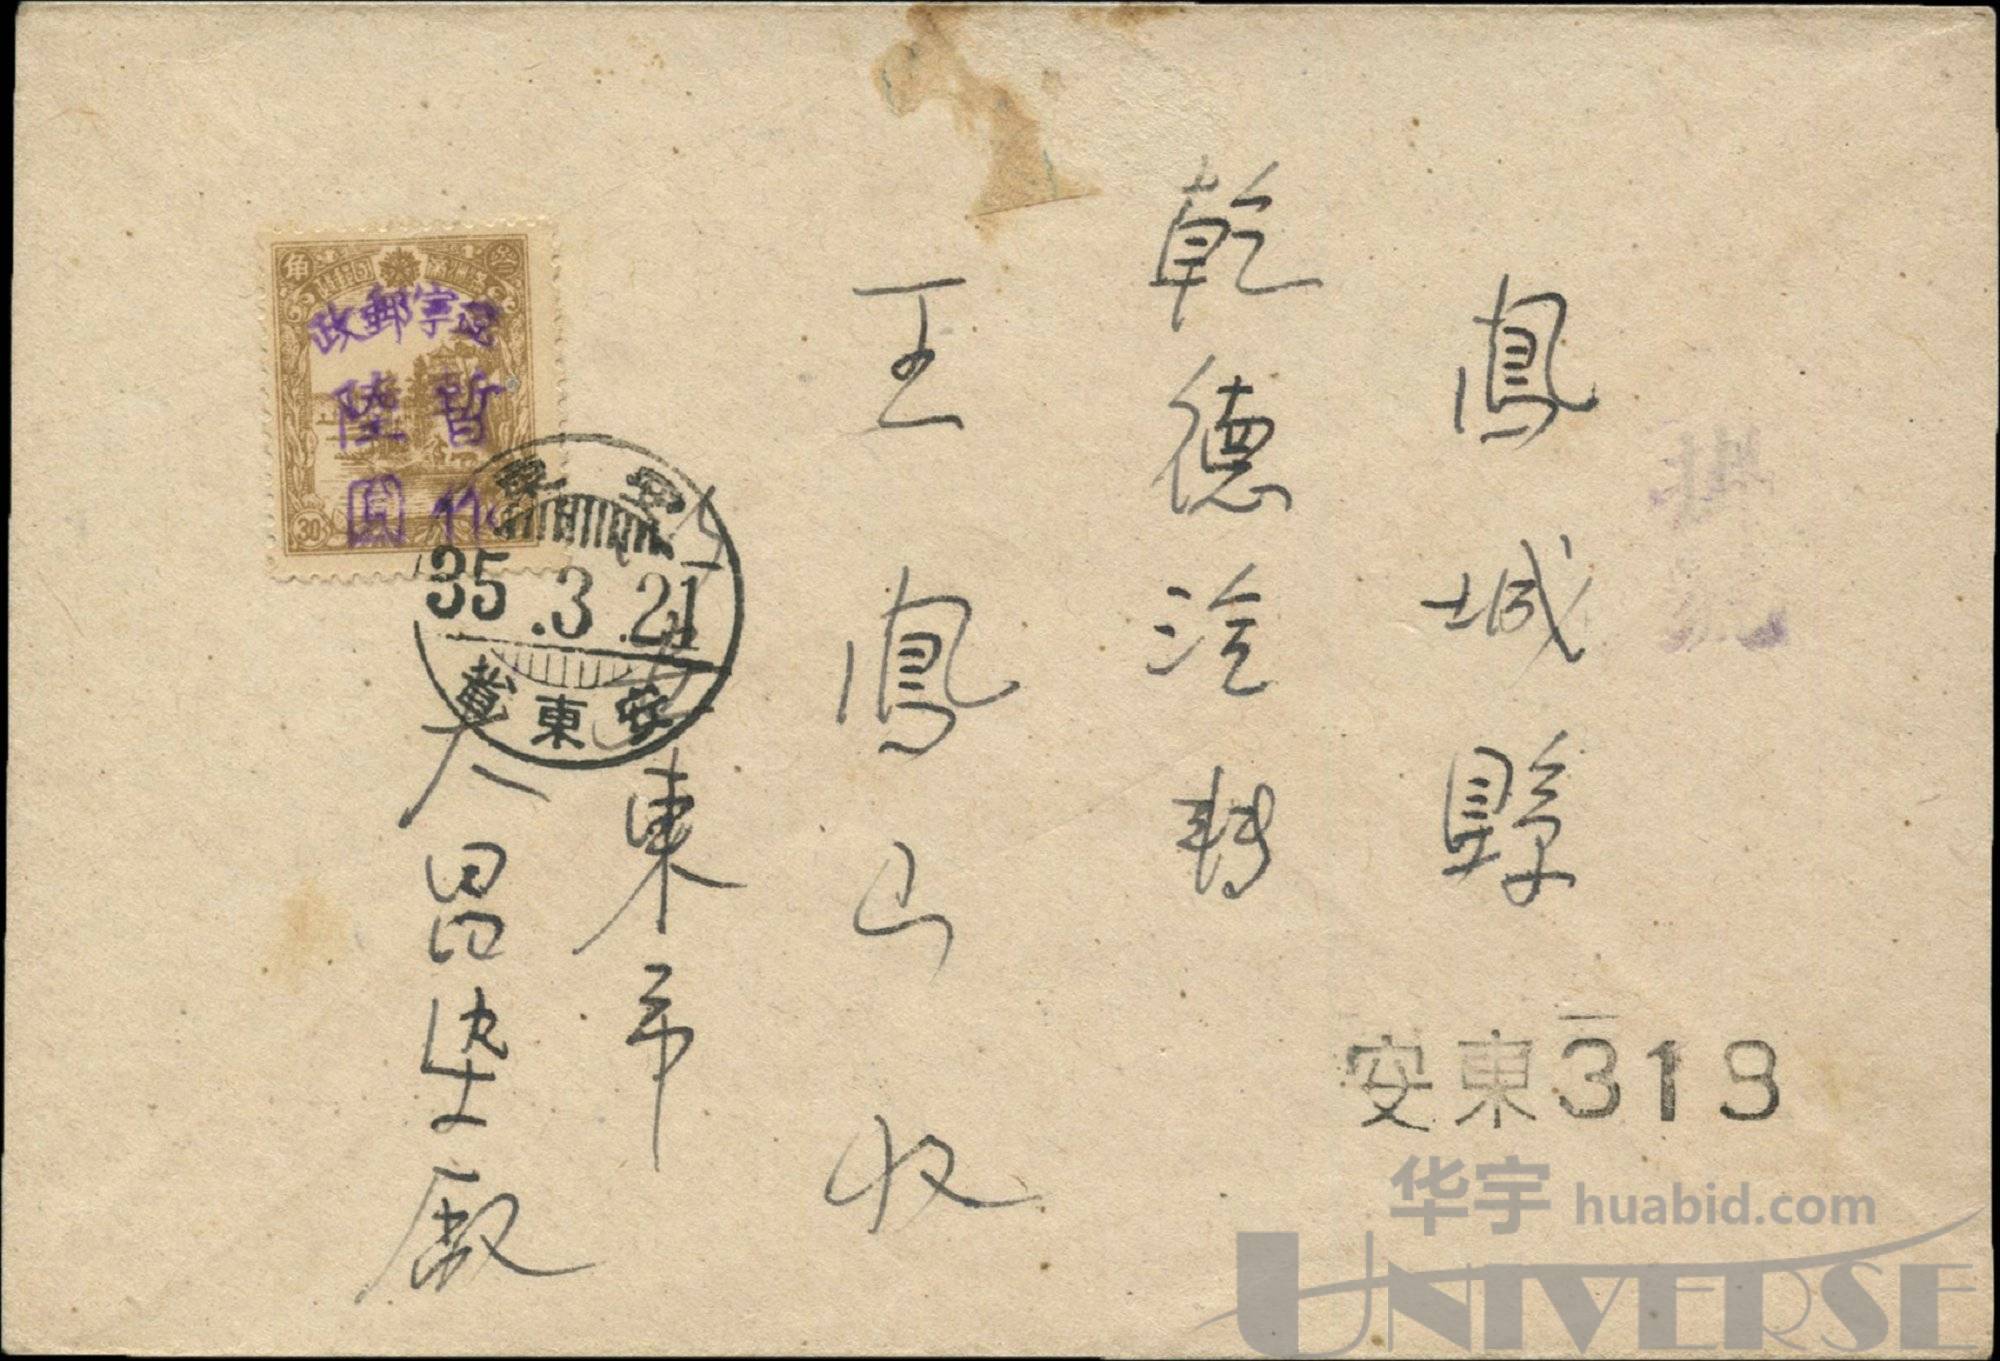 掛號
鳳城縣
乾德泩轉
王鳳山收
安東市
昌染廠
安東319
遼寧郵政
暫作
陸圓
角
30
35.3.21
安東
华宇 huabid.com
UNIVERSE